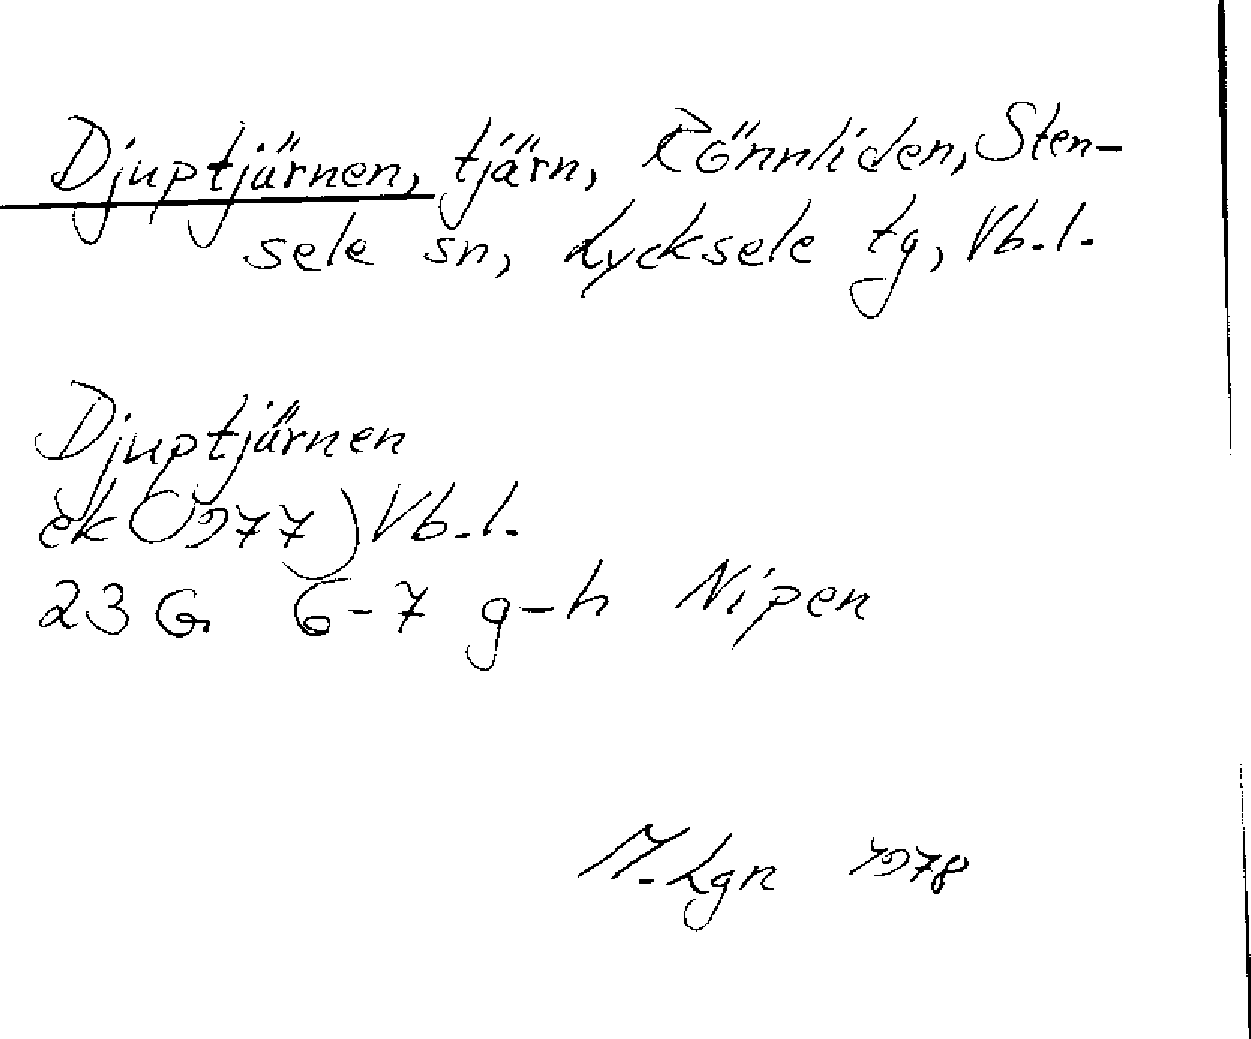 Djuptjärnen, tjärn, Rönnliden, Sten-
sele sn, Lycksele tg, Vb.l.
Djuptjärnen
ek (1977) Vb.l.
23 G 6-7 g-h Nipen
M. Lgn 1978